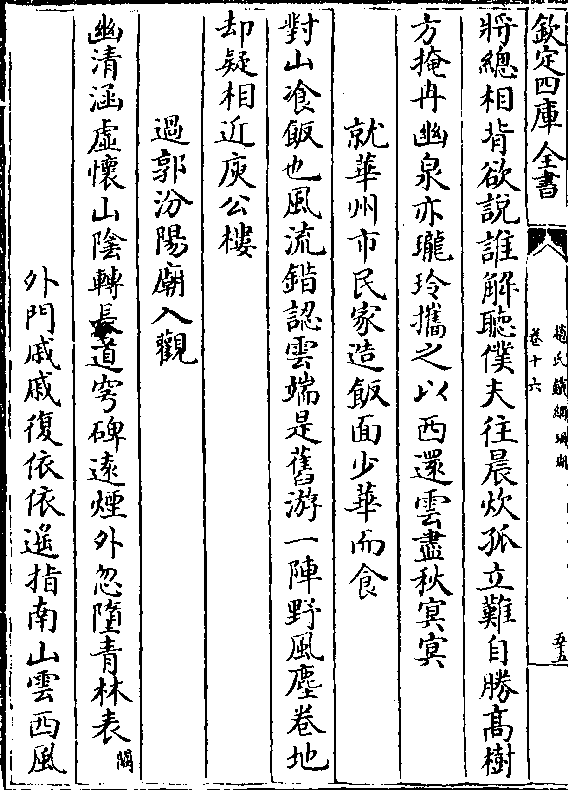 欽定四庫全書
趙氏鐵網珊瑚
卷十六
五五
將總相背欲說誰解聽僕夫往晨炊孤立難自勝高樹
方掩冉幽泉亦瓏玲攜之以西還雲盡秋冥冥
就華州市民家造飯面少華而食
對山飡飯也風流錯認雲端是舊游一陣野風塵卷地
却疑相近庾公樓
過郭汾陽廟入觀
幽清涵虛懷山陰轉長道穹碑遠煙外忽墮青林表闕
外門戚戚復依依遙指南山雲西風